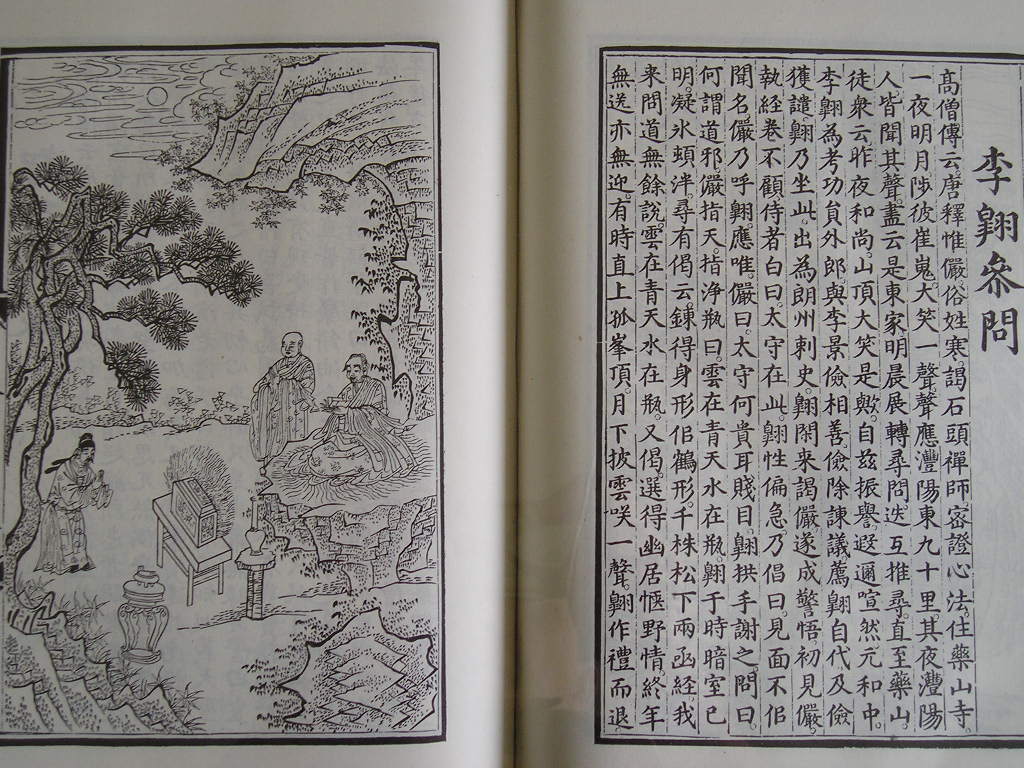 李翺叅問
高僧傳云。唐釋惟儼。俗姓寒。謁石頭禪師。密證心法。住藥山寺。
一夜明月。陟彼崔嵬。大笑一聲。聲應澧陽東九十里。其夜澧陽
人皆聞其聲。盡云是東家。明晨展轉尋問。迭互推尋。直至藥山。
徒衆云。昨夜和尚。山頂大笑是歟。自茲振譽遐邇喧然。元和中。
李翺為考功員外郎。與李景儉相善。儉除諫議。薦翺自代。及儉
獲譴。翺乃坐此。出為朗州刺史。翺閑來謁儼。遂成警悟。初見儼。
執經卷不顧。侍者白曰。太守在此。翺性偏急。乃倡曰。見面不佀
聞名。儼乃呼翺應唯。儼曰。太守何貴耳賤目。翺拱手謝之。問曰。
何謂道邪。儼指天指淨瓶曰。雲在青天水在瓶。翺于時暗室已
明。疑氷頓泮。尋有偈云。鍊得身形佀鶴形。千株松下兩函經。我
來問道無餘說。雲在青天水在瓶。又偈。選得幽居愜野情。終年
無送亦無迎。有時直上孤峯頂。月下披雲咲一聲。翺作禮而退